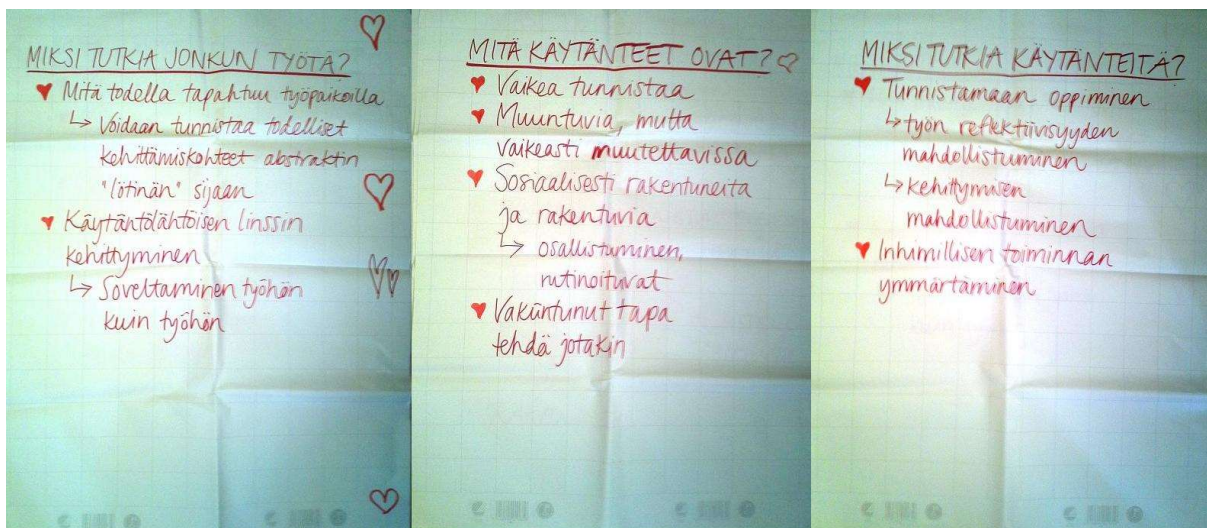 MIKSI TUTKIA JONKUN TYÖTÄ?
Mitä todella tapahtuu työpaikoilla
↳ Voidaan tunnistaa todelliset
kehittämiskohteet abstraktin
"lötinän" sijaan
Käytäntölähtöisen linssin
kehittyminen
↳ Soveltaminen työhön
kuin työhön
MITÄ KÄYTÄNTEET OVAT?
Vaikea tunnistaa
Muuntuvia, mutta
vaikeasti muutettavissa
Sosiaalisesti rakentuneita
ja rakentuvia
↳ osallistuminen,
rutinoituvat
Vakiintunut tapa
tehdä jotakin
MIKSI TUTKIA KÄYTÄNTEITÄ?
Tunnistamaan oppiminen
↳ työn reflektiivisyyden
mahdollistuminen
↳ kehittymisen
mahdollistuminen
Inhimillisen toiminnan
ymmärtäminen